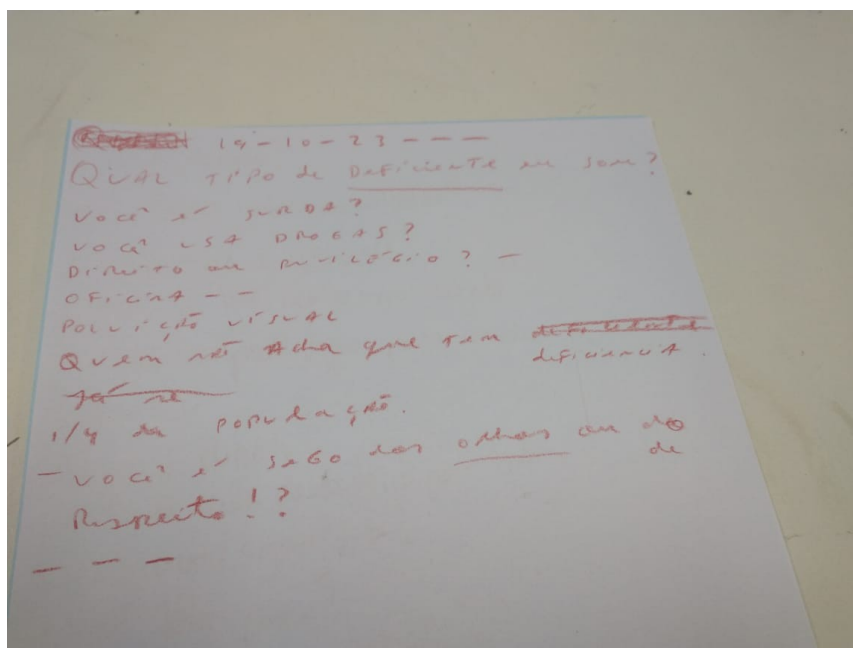 19-10-23 - - -
QUAL TIPO de DeficienTe eu sou?
Você é SURDA?
VOCÊ USA DROGAS?
DiReiTo ou PRiviLÉGio? -
OFicinA - -
POLUIÇÃO VISUAL
QUem não Acha que Tem deficienciA.
Já se
1/4 da POPULAÇÃO.
- VOCÊ é SeGO dos olhos ou do de
Respeito!?
- - -